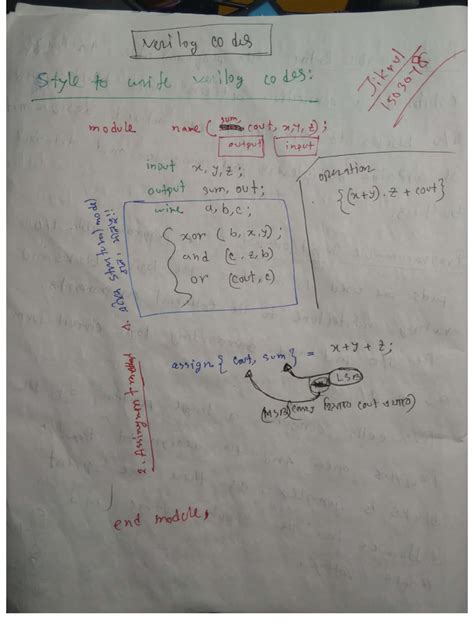 verilog codes
Style to write verilog codes:
Jikrul
1503018
module name ( sum, cout, x,y,z) ;
output input
input x, y, z ;
output sum, out ;
wire a, b, c ;
xor ( b, x, y) ;
and (c, z, b)
or (cout, c)
operation
{(x+y) . z + cout}
1.
structural model
assign { cout, sum } = x + y + z ;
LSB
(MSB)
cout
2. Assignment method
end module,